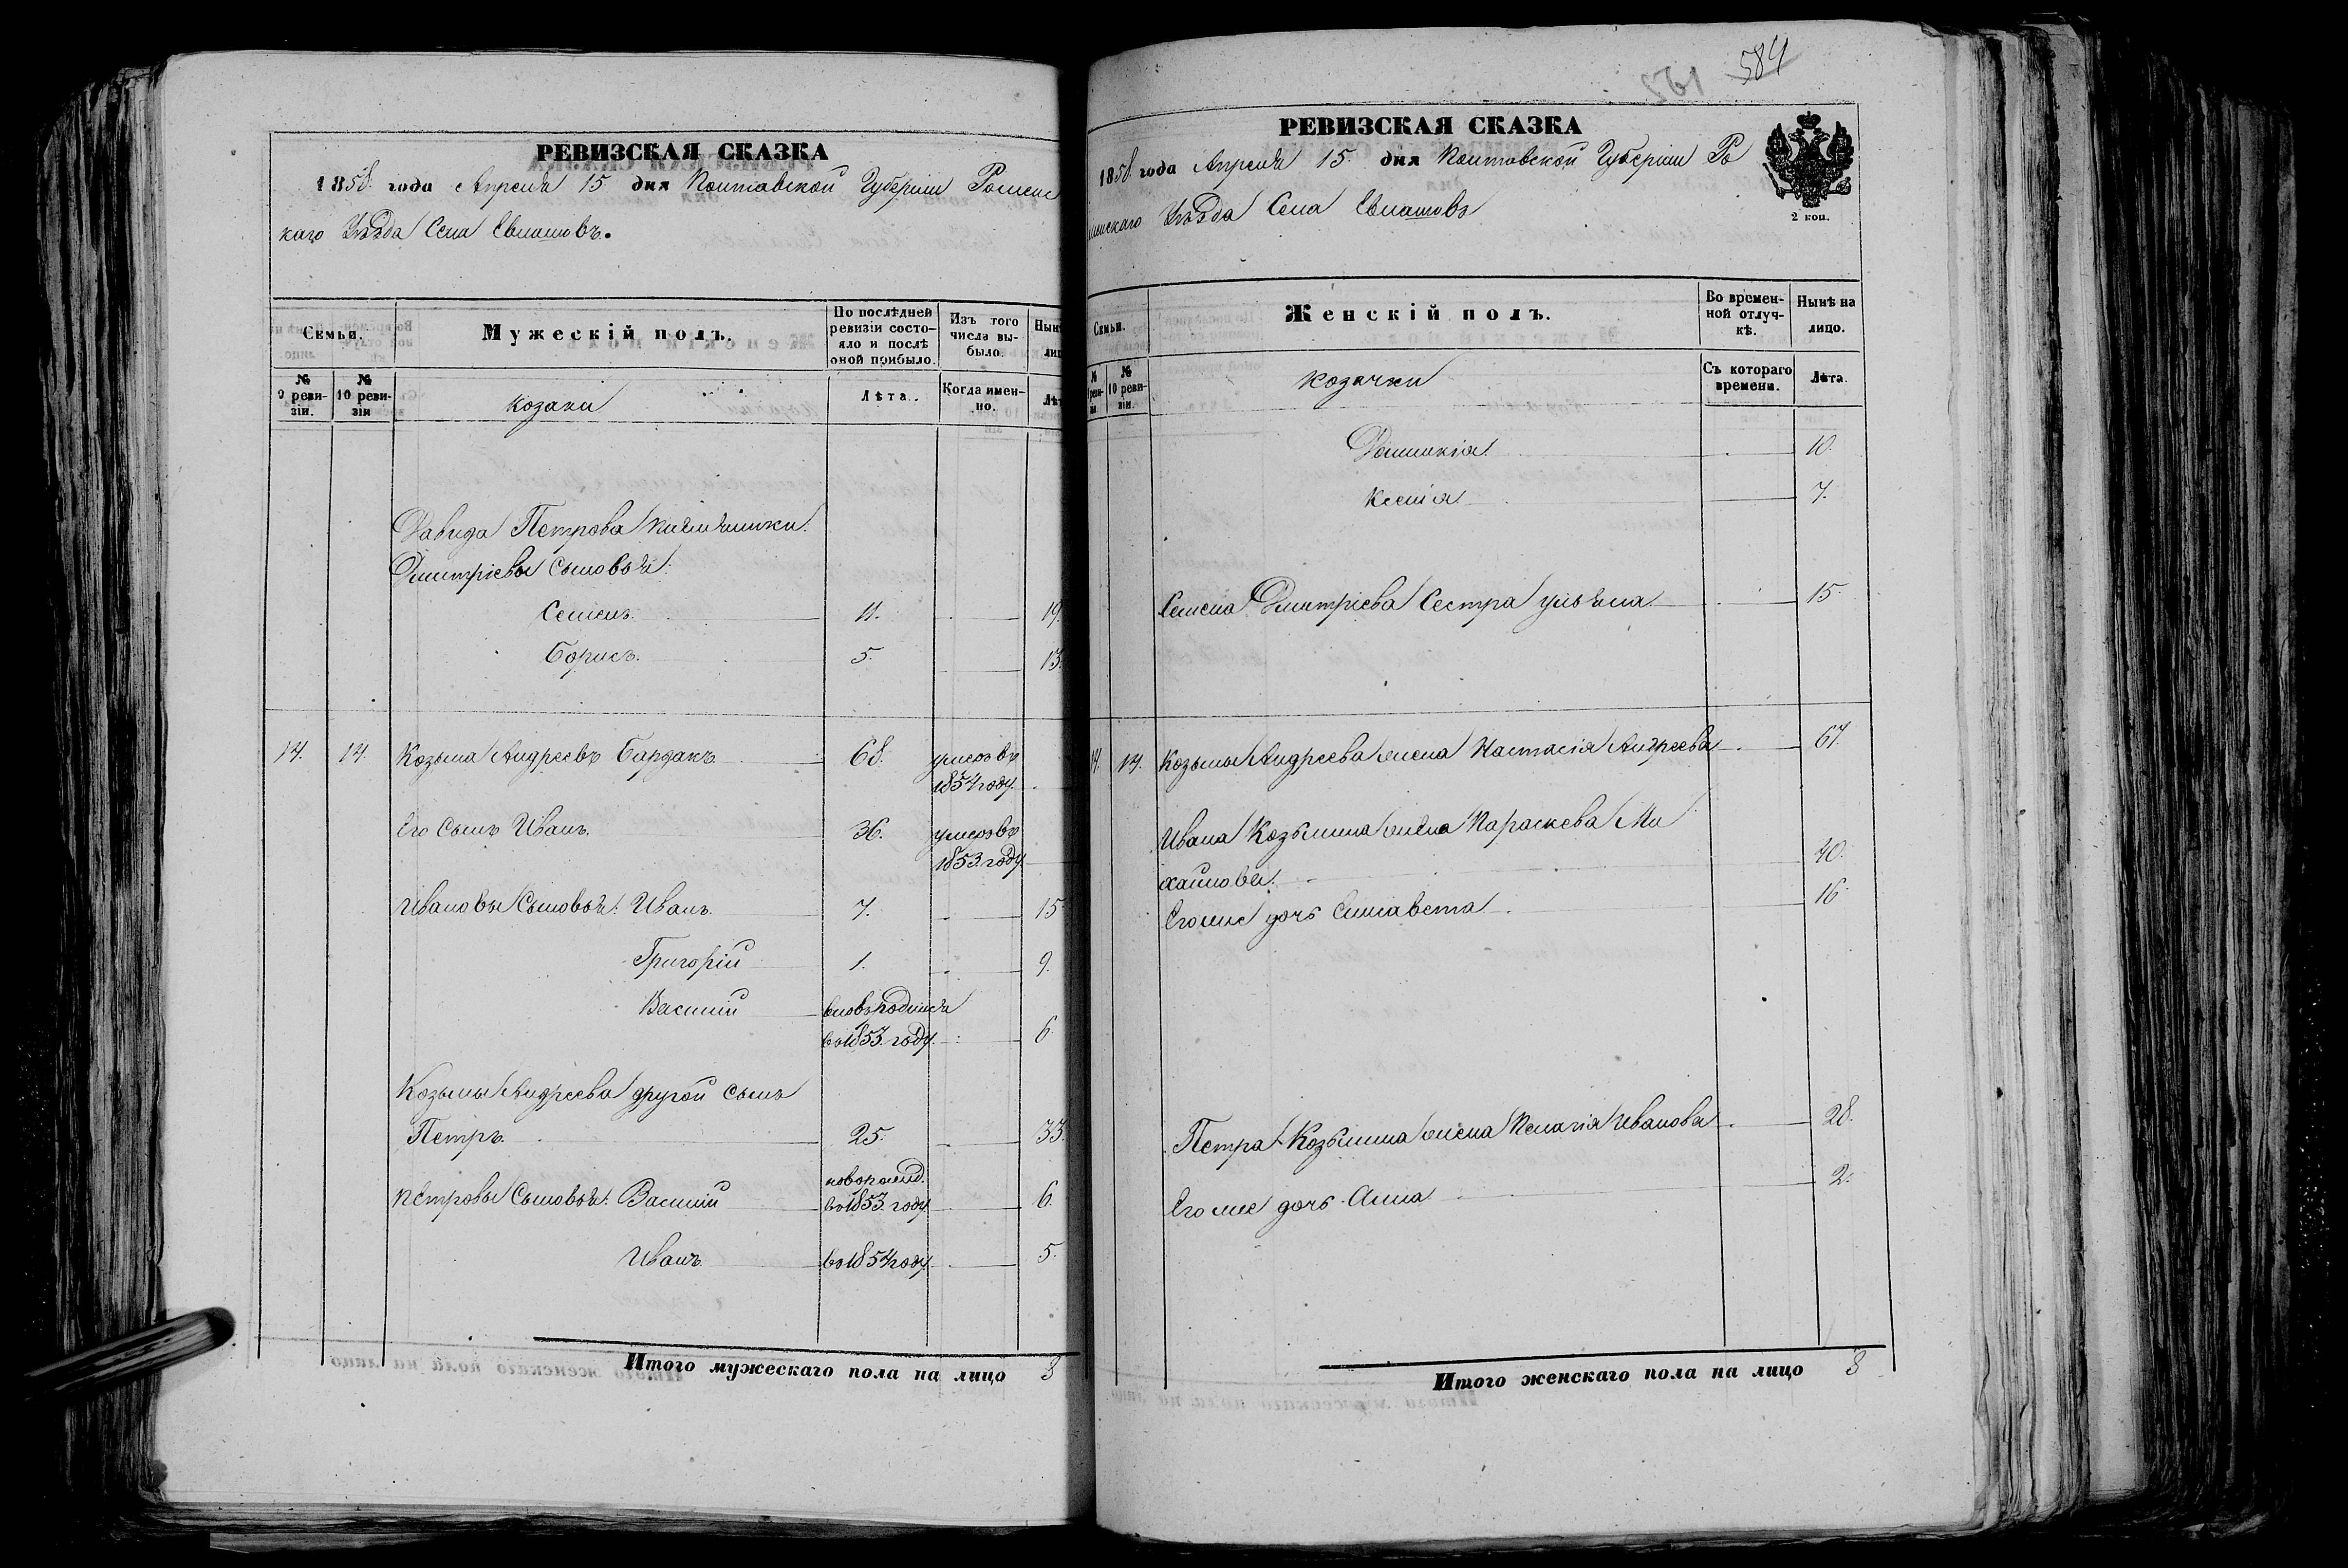 РЕВИЗСКАЯ СКАЗКА
1858. года Апреля 15 дня Полтавской Губерніи Роменс
каго Уѣзда Села Евлашовъ.
Семьи.
Мужескій полъ.
По послѣдней ревизіи состояло и послѣ оной прибыло.
Изъ того числа выбыло.
№ 9 ревизіи.
№ 10 ревизіи
козаки
Лѣта.
Когда именно.
Давида Петрова
Дмитріевы Сыновья:
Семенъ. 11. 19.
Борисъ. 5. 13.
14. 14. Козьма Андреевъ Бардакъ 68. умеръ въ
1854 году.
Его Сынъ Иванъ. 36. умеръ въ
1853. году
Ивановы Сыновья: Иванъ. 7. 15
Григорій 1. 9.
Василій вновь родился
въ 1853. году. 6
Козьмы Андреева другой сынъ
Петръ. 25. 33.
новорожд.
Петровы Сыновья: Василій въ 1853. году. 6.
Иванъ въ 1854 году. 5.
Итого мужескаго пола на лицо 8
561 584
РЕВИЗСКАЯ СКАЗКА
1858. года Апреля 15. дня Полтавской Губерніи Ро
менскаго Уѣзда Села Евлашовъ
2 коп.
Семьи.
Женскій полъ.
Во временной отлучкѣ.
Нынѣ на лицо.
№ 10 ревизіи.
козачки
Съ котораго времени.
Лѣта.
10.
Ксенія 7.
Семена Дмитріева Сестра Ульяна 15.
14. 14. Козьмы Андреева жена Настасія Андреева 67.
Ивана Козьмина жена Параскева Ми
хайлова. 40.
Его же дочь Елисавета 16
Петра Козьмина жена Пелагія Иванова 28.
Его же дочь Анна 2.
Итого женскаго пола на лицо 8